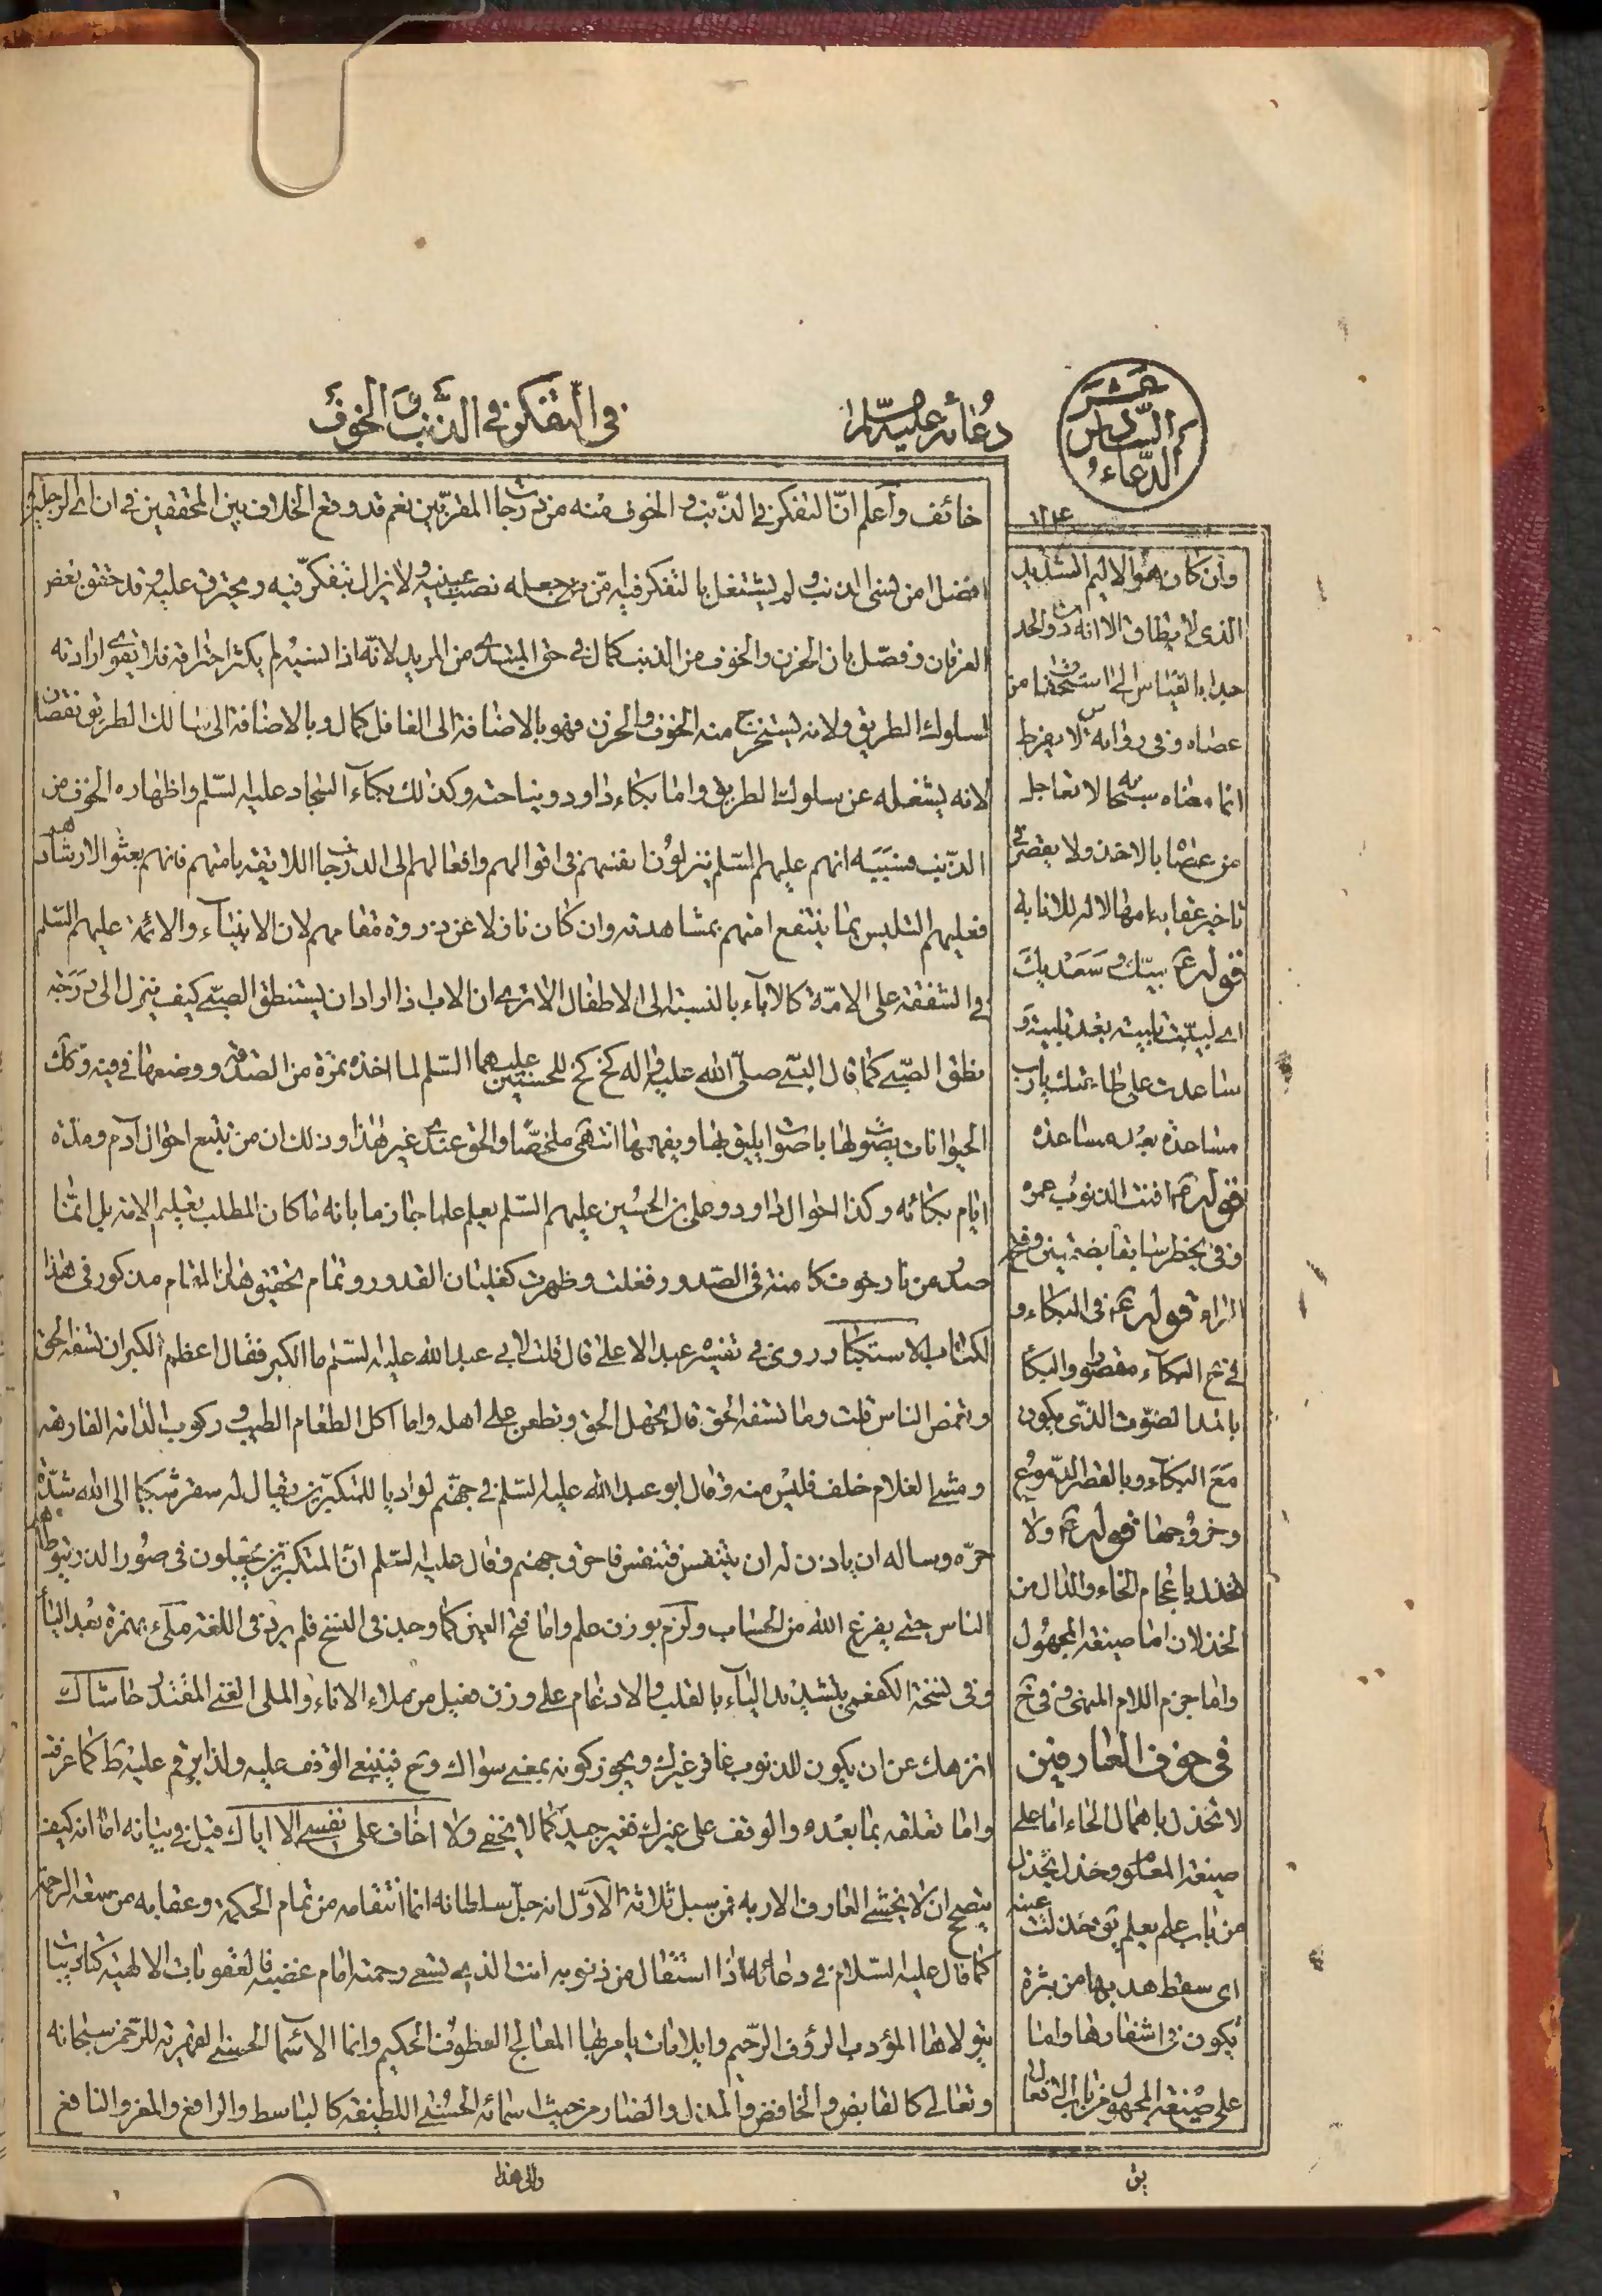 الدعاء السادس عشر
دعائه عليه السلام
في التفكر في الذنب و الخوف
١٢٤
خائف واعلم انّ التفكر في الذنب و الخوف منه من درجات المقربين نعم قد وقع الخلاف بين المحققين في ان اي الرجلين
افضل امن نسى الذنب و لم يشتغل بالتفكر فيه ممن جعله نصب عينيه و لا يزال يتفكر فيه و يحترق عليه و قد حقق بعض
العرفان و فصّل بان الحزن والخوف من الذنب كمال في حق المبتدى من المريد لانّه اذا نسيه لم يكثر احتراقه فلا يقوى ارادته
لسلوك الطريق ولانه يستخرج منه الخوف والحزن فهو بالاضافة الى الغافل كمال و بالاضافة الى سالك الطريق نقصان
لانه يشغله عن سلوك الطريق واما بكاء داود و نياحته وكذلك بكاء السجاد عليه السّلم واظهاره الخوف من
الذنب فسببه انهم عليهم السّلم نزلوا نفسهم في اقوالهم وافعالهم الى الدرجات اللايقة بامتهم فانهم بعثوا لارشادهم
فعليهم التلبس بما ينتفع امتهم بمشاهدته وان كان نازلا عن ذروة مقامهم لان الانبياء والائمة عليهم السّلم
في الشفقة على الامّة كالاباء بالنسبة الى الاطفال الا ترى ان الاب اذا اراد ان يستنطق الصبي كيف ينزل الى درجة
نطق الصبي كما قال النبي صلّى الله عليه واله كخ كخ للحسين عليهما السّلم لما اخذ تمرة من الصدقة و وضعها في فيه وكك
الحيوانات يصوت لها باصوات يليق بها و يفهمها انتهى ملخصا والحق عندي غير هذا و ذلك ان من تتبع احوال آدم ومدة
ايام بكائه وكذا احوال داود وعلى بن الحسين عليهم السّلم يعلم علما جازما بانه ما كان المطلب تعليم الامة بل انما
صدر عن نار خوف كامنة في الصدور فغلت وظهرت كغليان القدور وتمام تحقيق هذا المقام مذكور في هذا
الكتاب الاستكبار روى في تفسيره عبد الاعلى قال قلت لابى عبد الله عليه السّلم ما الكبر فقال اعظم الكبر ان تسفه الحق
وتغمض الناس قلت وما تسفه الحق قال يجهل الحق و تطعن على اهله واما اكل الطعام الطيب و ركوب الدابة الفارهة
ومشي الغلام خلف فليس منه وقال ابو عبد الله عليه السّلم في جهنّم لواديا للمتكبرين يقال له سقر شكا الى الله شدّة
حرّه وساله ان ياذن له ان يتنفس فتنفس فاحرق جهنم وقال عليه السّلم انّ المتكبرين يجعلون في صور الذر يتوطاهم
الناس حتى يفرغ الله من الحساب ولزم بوزن علم واما فتح العين كما وجد في النسخ فلم يرد في اللغة ملىء بهمزة بعد الياء
وفي نسخة الكفعمي بتشديد الياء بالقلب والادغام على وزن فعيل من ملاء الاناء والملى الغنى المقتدر حاشاك
انزهك عن ان يكون للذنوب غافر غيرك ويجوز كونه بمعنى سواك وح فينبغي الوقف عليه ولذا رقم عليه ط كما عرفت
واما تعلقه بما بعده والوقف على غيرك فغير جيد كما لا يخفى ولا اخاف على نفسي الا اياك قيل في بيانه اما انه كيف
يتضح ان لا يخشى العارف الا ربه فمن سبل ثلاثة الاوّل انه جلّ سلطانه انما انتقامه من تمام الحكمة وعقابه من سعة الرحمة
كما قال عليه السّلام في دعائه اذا استقال من ذنوبه انت الذي تسعى رحمته امام غضبه فالعقوبات الالهية كتاديبات
يتولاها المؤدب الرؤف الرّحيم وايلامات يامر بها المعالج العطوف الحكيم وانما الاسماء الحسنى القهرية للرّحمن سبحانه
وتعالى كالقابض والخافض والمذل والضار من حيث اسمائه الحسنى اللطيفة كالباسط والرافع والمعز والنافع
والى هذا
وان كان هو الاليم الشديد
الذى لا يطاق الا انه دون الحد
جدا بالقياس الى استحقاق من
عصاه و في رواية س لا يفرط
انما معناه سبحانه لا تعاجل
من عصاك بالاخذ ولا يقصر في
تاخير عقابه امهالا له للانابة
قوله ع لبيك و سعديك
اى لبيت تلبية بعد تلبية و
ساعدت على طاعتك يا رب
مساعدة بعد مساعدة
قوله ع افنت الذنوب عمره
و في بخط س
الراء قوله ع في البكاء و
في خ البكاء مقصورا والبكا
بالمد الصّوت الذّى يكون
مع البكاء وبالقصر الدّموع
وخروجها قوله ع ولا
تخذل باعجام الخاء والذال من
الخذلان اما صيغة المجهول
واما جزم اللام المنهى و في خ
في خوف العارفين
لا تحذل باهمال الحاء اما على
صيغة المعلوم و حذل يحذل
من باب علم يعلم يق حذلت عينه
اى سقط هدبها من بثرة
تكون في اشفارها واما
على صيغة المجهول من باب الافعال
يق